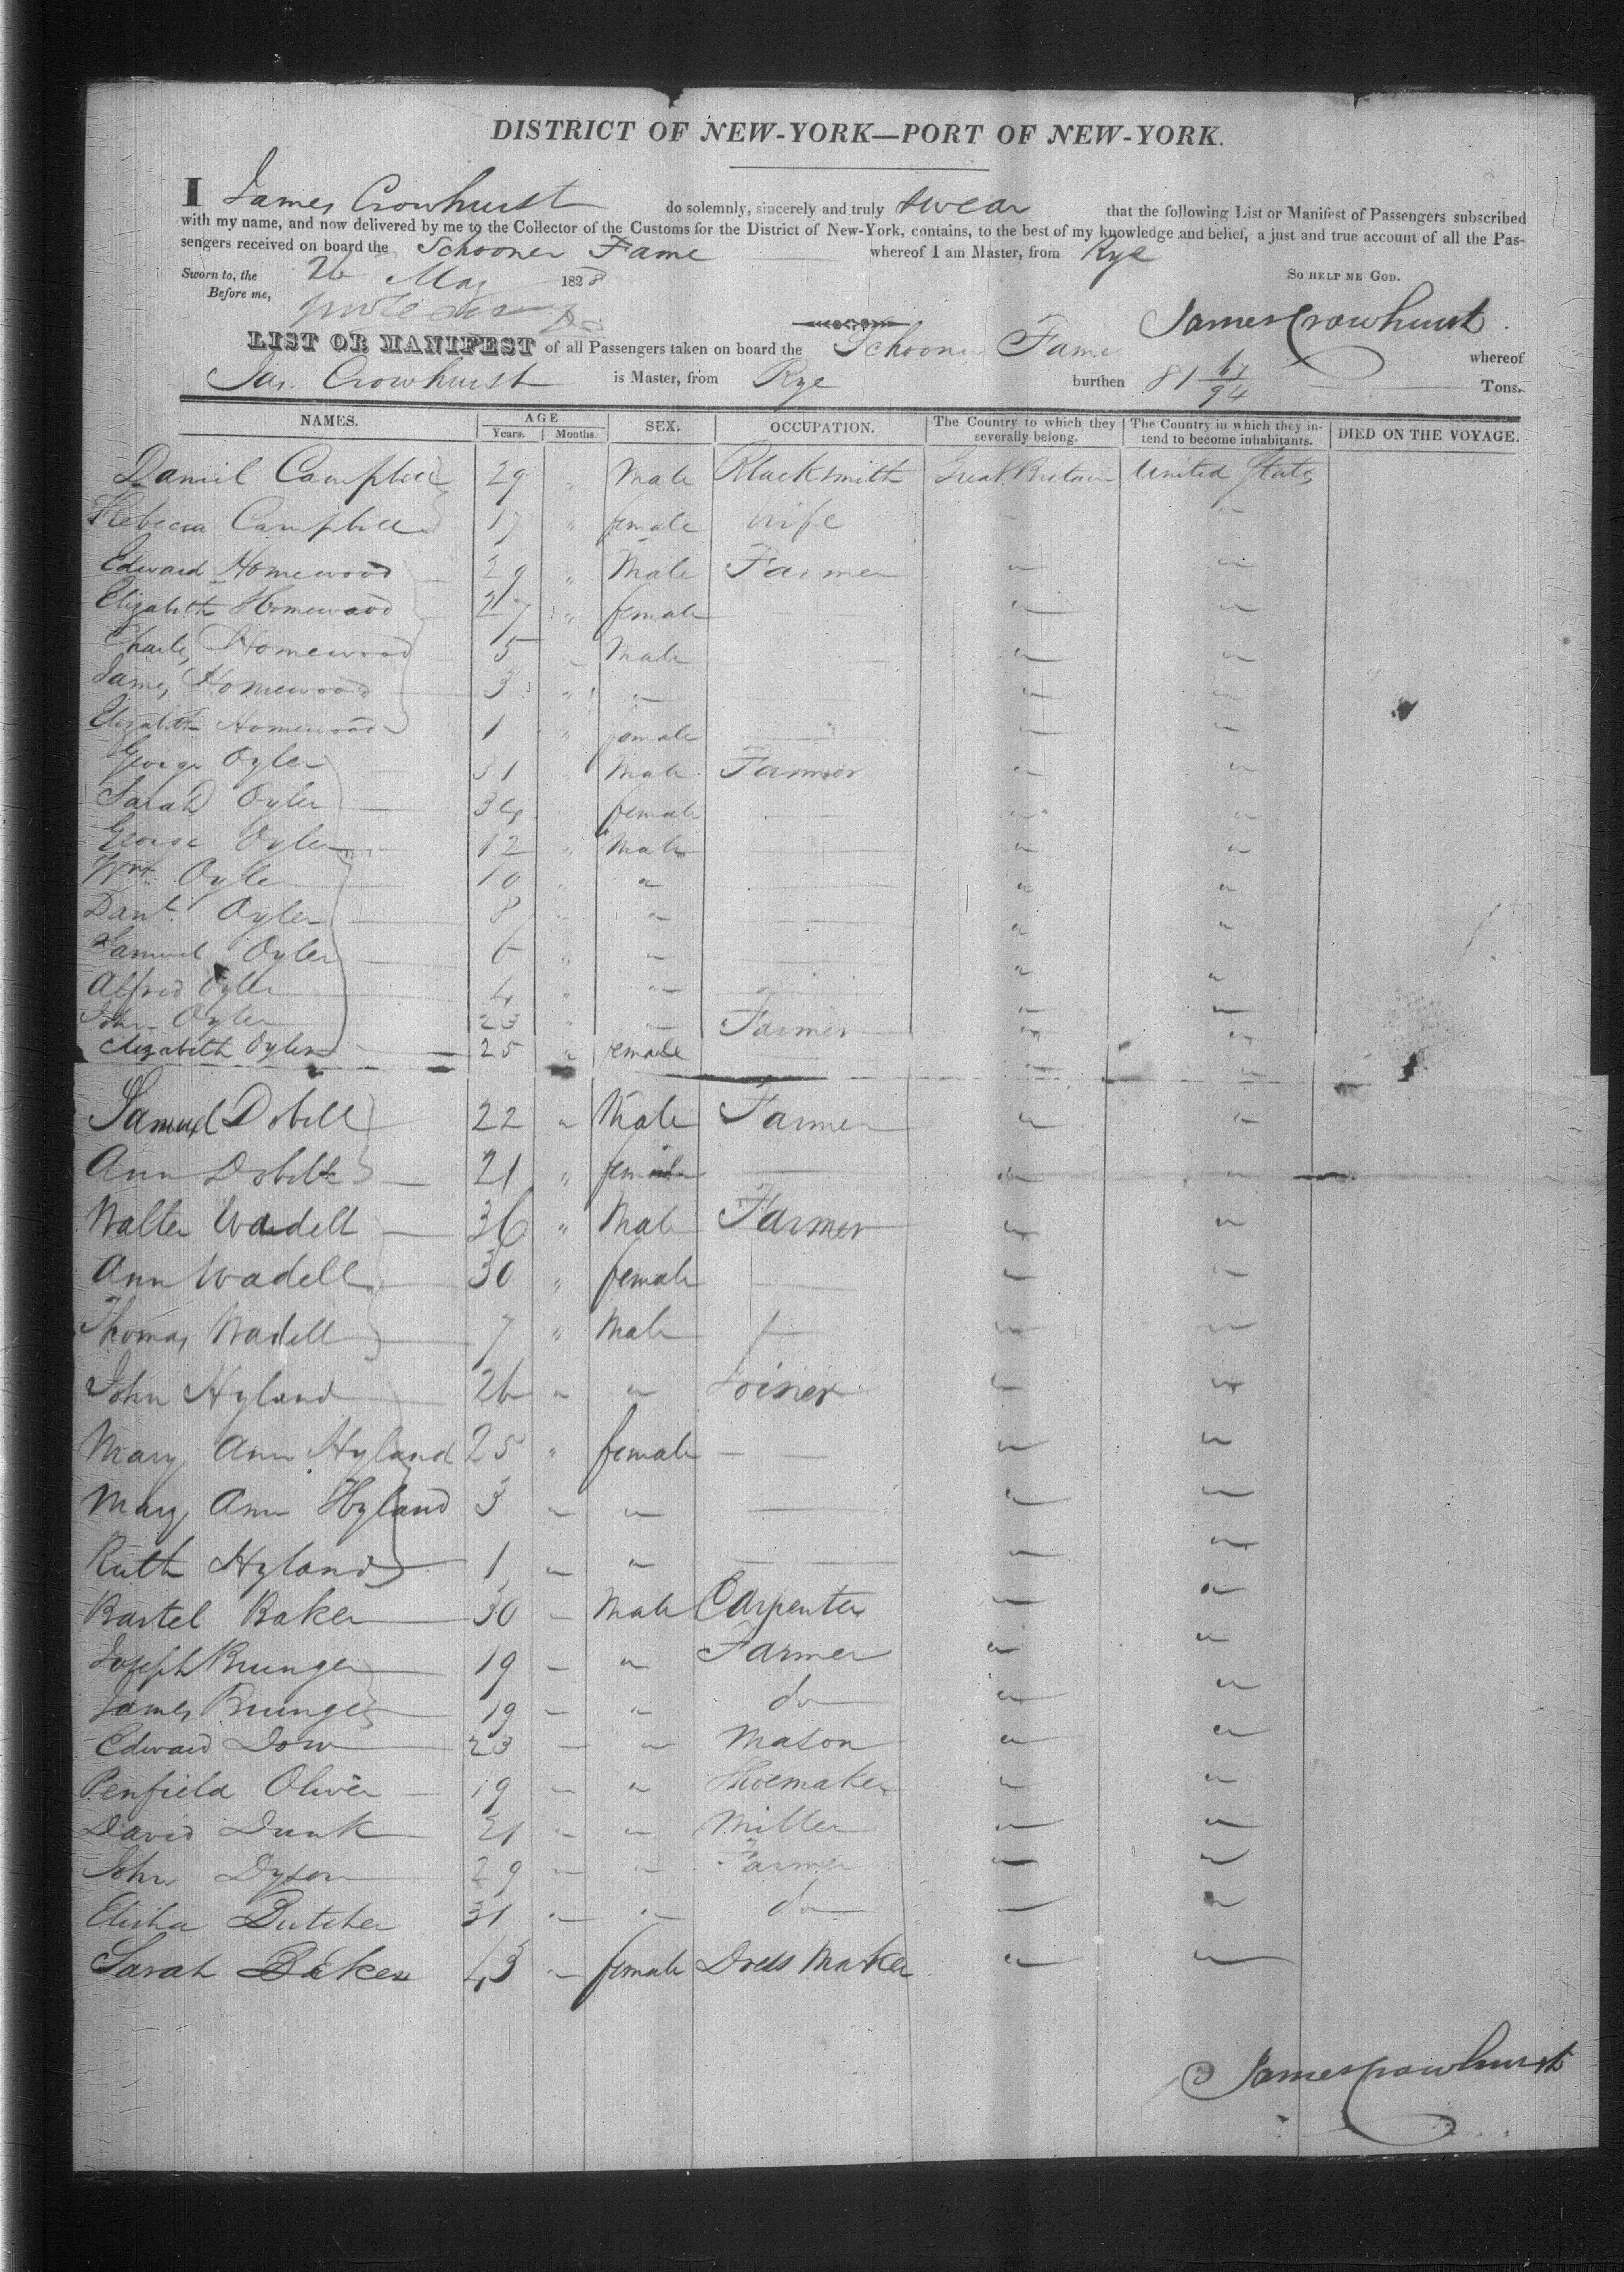 DISTRICT OF NEW-YORK—PORT OF NEW-YORK.
I James Crowhurst do solemnly, sincerely and truly swear that the following List or Manifest of Passengers subscribed
with my name, and now delivered by me to the Collector of the Customs for the District of New-York, contains, to the best of my knowledge and belief, a just and true account of all the Pas-
sengers received on board the Schooner Fame whereof I am Master, from Rye
Sworn to, the 26 May 1828 SO HELP ME GOD.
Before me,
James Crowhurst
LIST OR MANIFEST of all Passengers taken on board the Schooner Fame whereof
Jas. Crowhurst is Master, from Rye burthen 81 67/94 Tons.
NAMES. AGE Years. Months. SEX. OCCUPATION. The Country to which they severally belong. The Country in which they intend to become inhabitants. DIED ON THE VOYAGE.
Daniel Campbell 29 " Male Blacksmith Great Britain United States
Rebecca Campbell 17 " female Wife " "
Edward Homewood 29 " Male Farmer " "
Elizabeth Homewood 27 " female " "
Charles Homewood 5 " Male " "
James Homewood 3 " " " "
Elizabeth Homewood 1 " female " "
George Oyler 31 " Male Farmer " "
Sarah Oyler 34 female " "
George Oyler 12 " Male " "
Wm. Oyler 10 " " " "
Danl. Oyler 8 " " " "
Samuel Oyler 6 " " " "
Alfred Oyler 4 " " " " "
John Oyler 23 " " Farmer " "
Elizabeth Oyler 25 " female " "
Samuel Dobell 22 " Male Farmer " "
Ann Dobell 21 " female " "
Walter Wadell 36 " Male Farmer " "
Ann Wadell 30 " female " "
Thomas Wadell 7 " Male " "
John Hyland 26 " " Joiner " "
Mary Ann Hyland 25 " female " "
Mary Ann Hyland 3 " " " "
Ruth Hyland 1 " " " "
Bartel Baker 30 " Male Carpenter " "
Joseph Brunger 19 " " Farmer " "
James Brunger 19 " " do " "
Edward Dow 23 " " Mason " "
Penfield Oliver 19 " " Shoemaker " "
David Dunk 21 " " Miller " "
John Dyson 29 " " Farmer " "
Elisha Butcher 31 " " do " "
Sarah Baker 43 " female Dress Maker " "
James Crowhurst